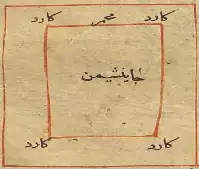 کارد مجمر کارد
جاینشیمن
کارد کارد